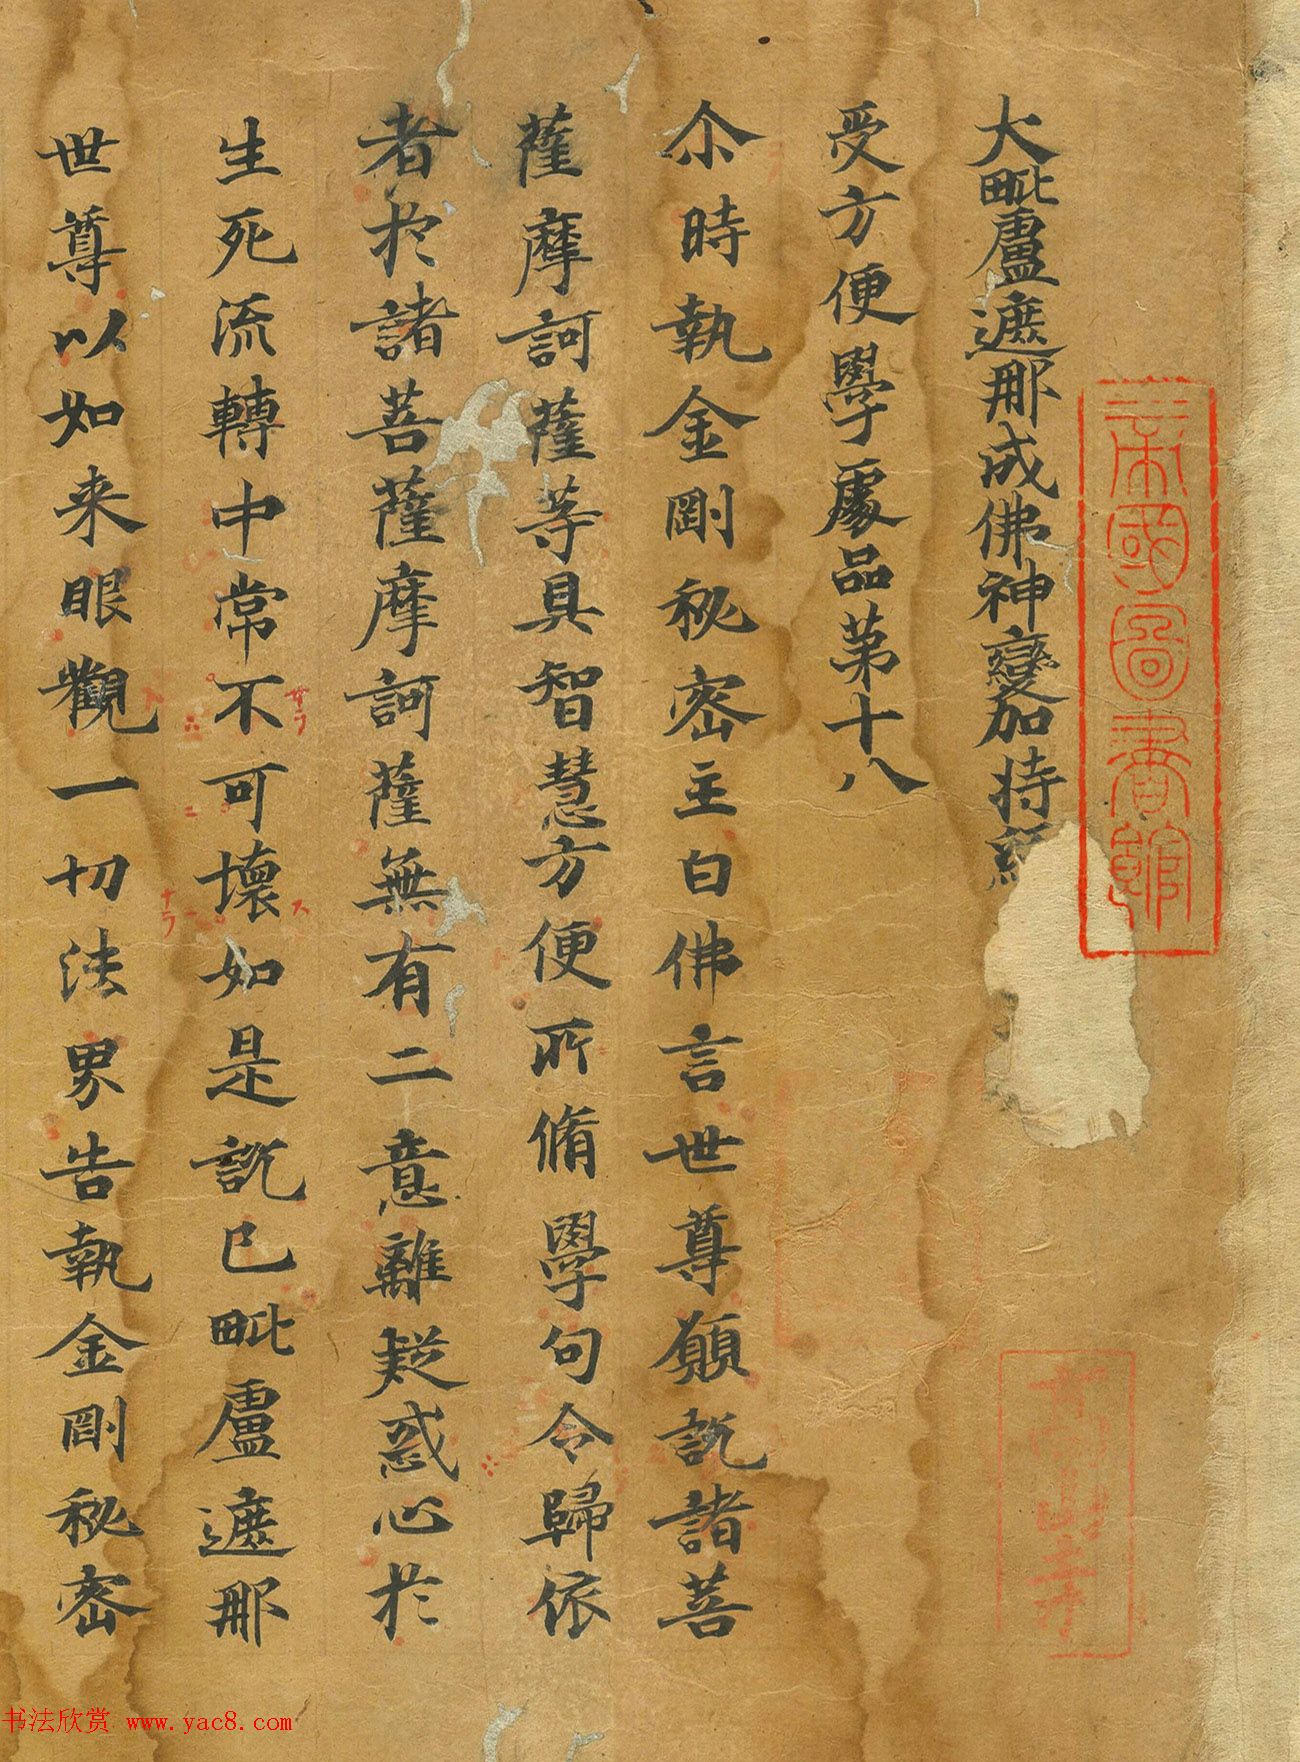 大毗盧遮那成佛神變加持經
受方便學處品第十八
尒時執金剛秘密主白佛言世尊願說諸菩
薩摩訶薩等具智慧方便所脩學句令歸依
者於諸菩薩摩訶薩無有二意離疑惑心於
生死流轉中常不可壞如是說已毗盧遮那
世尊以如来眼觀一切法界告執金剛秘密
帝國圖書館
高山寺
サラ
ス
ナラ
书法欣赏 www.yac8.com